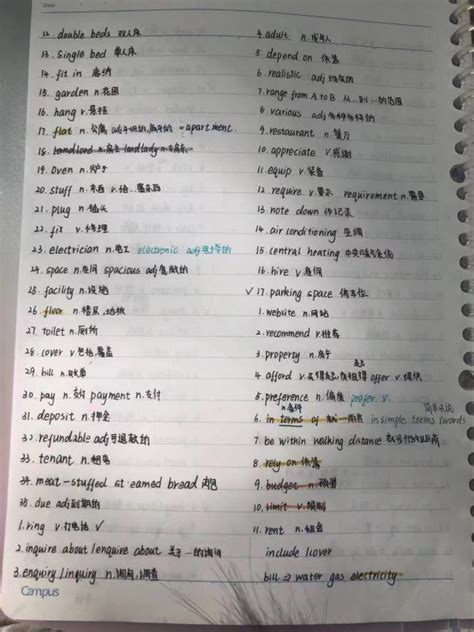 12. double beds 双人床
13. single bed 单人床
14. fit in 容纳
15. garden n.花园
16. hang v.悬挂
17. flat n.公寓 adj.平坦的, =apartment.
18. landlord n.房东 landlady n.女房东
19. oven n.炉子
20. stuff n.东西 v.
21. plug n.插头
22. fix v.修理
23. electrician n.电工 electronic adj.电子的
24. space n.空间 spacious adj.宽敞的
25. facility n.设施
26. floor n.楼层,地板
27. toilet n.厕所
28. cover v.包括,覆盖
29. bill n.账单
30. pay n.支付 payment n.支付
31. deposit n.押金
32. refundable adj.可退款的
33. tenant n.
34. meat-stuffed steamed bread 肉包
35. due adj.到期的
1. ring v.打电话 √
2. inquire about/enquire about 关于…的询问
3. enquiry/inquiry n.询问,调查
Campus
4. adult n.成年人
5. depend on 依靠
6. realistic adj.现实的
7. range from A to B 从…到…的范围
8. various adj.各种各样的
9. restaurant n.餐厅
10. appreciate v.感谢
11. equip v.装备
12. require v.要求 requirement n.需要
13. note down 作记录
14. air conditioning 空调
15. central heating 中央暖气系统
16. hire v.雇佣
√ 17. parking space 停车位
1. website n.网站
2. recommend v.推荐
3. property n.房子
4. afford v.买得起,负担得起 offer v.提供
5. preference n.偏爱 prefer v.
6. in terms of 就…而言 in simple terms/words
7. be within walking distance
8. rely on 依靠
9. budget n.预算
10. limit v.限制
11. rent n.租金
include /cover
bill ⇒ water gas electricity